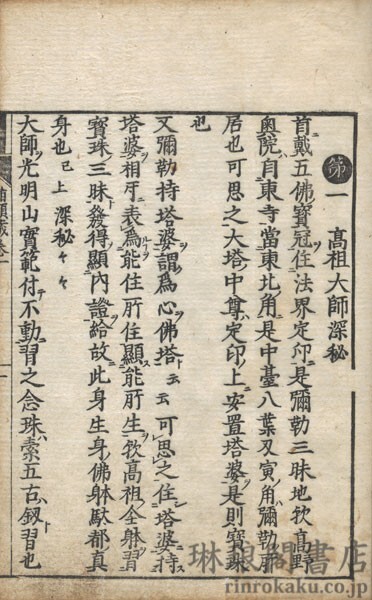 第一 高祖大師深秘
首戴五佛寶冠住法界定印是彌勒三昧地欤高野
奥院自東寺當東北角是中臺八葉丑寅角彌勒所
居也可思之大塔中尊定印上安置塔婆是則寶珠
也
又彌勒持塔婆謂為心佛塔云云可思之住塔婆持
塔婆相牙表為能住所住顯能所生欤高祖全躰習
寶珠三昧發得顯內證給故此身生身佛躰馱都真
身也已上深秘々々
大師光明山實範付不動習之念珠索五古釼習也
琳琅閣書店
rinrokaku.co.jp